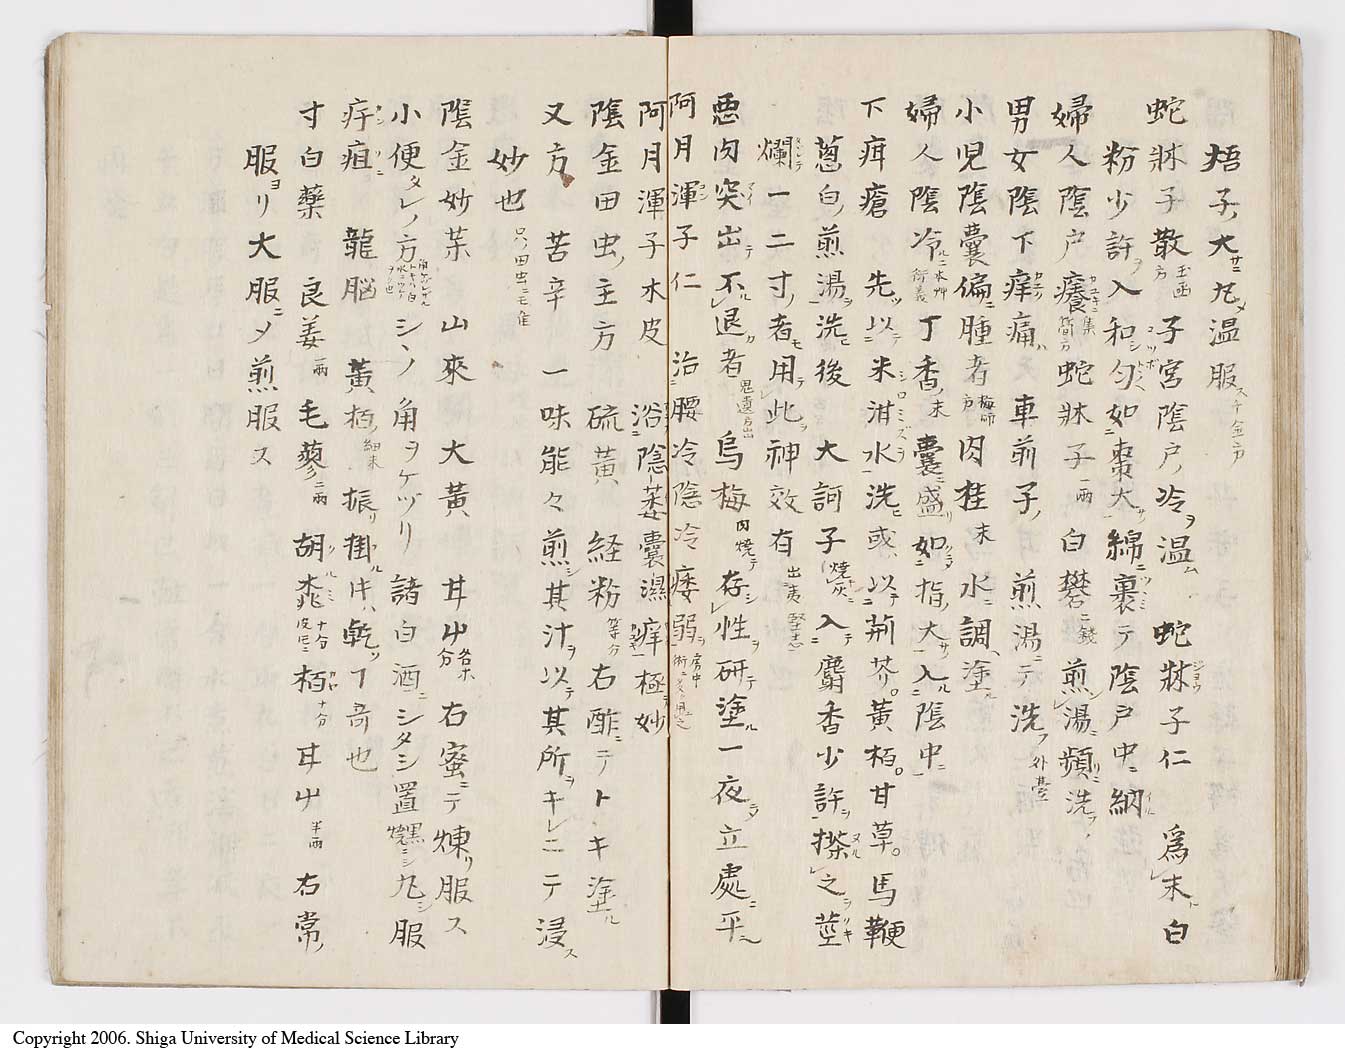 梧子ノ大サニ丸メ温服ス 千金方
蛇牀子散 玉函方 子宮陰戸ノ冷ヲ温ム 蛇牀子仁 為末ト 白
粉少許ヲ入和匀シ如棗大サノ綿ニツヽミ裹テ陰戸中ニ納ル
婦人陰戸癢カユキニ 集簡方 蛇牀子一両 白礬二銭 煎シ湯ニ頻リニ洗フ
男女陰下痒カユク痛ハ 車前子ノ煎湯ニテ洗フ 外臺
小児陰囊偏ニ腫者 梅師方 肉桂末 水ニ調ヘ塗ル
婦人陰冷ルニ 本艸衍義 丁香ノ末 囊ニ盛リ如指ノ大サノ入ル陰中ニ
下疳瘡 先ツ以テ米泔水シロミズヲ洗ヒ或ハ以テ荊芥。黄栢。甘草。馬鞭
葱白ノ煎湯ヲ洗ヒ後 大訶子 焼灰ニ 入テ麝香少許ヲ搽ヌル之ヲ 茎
爛タヾレテ一二寸ノ者モ用テ此ヲ神效有 出夷堅志
悪肉突出テ不退ルカ者 鬼遺方出 烏梅肉 焼テ存シ性ヲ研テ塗ル一夜ニ立處ニ平ル
阿月渾子仁 治腰冷陰冷痿弱ヲ 房中術ニ多ク用之
阿月渾子木皮 浴ニ陰ノ萎囊濕痒カユキヲ極テ妙
陰金田虫ノ主方 硫黄 経粉 等分 右酢ニテトキ塗ル
又方 苦辛 一味能々煎シ其汁ヲ以テ其所ヲキレニテ浸ス
妙也 只ノ田虫ニモ佳
陰金妙茱 山來 大黄 甘艸 各ホ分 右蜜ニテ煉リ服ス
小便タレノ方 シヽノ角ヲケヅリ 諸白酒ニシタシ置 黒焼ニシ 丸シ服
疳疽ニ 龍脳 黄栢ノ細末 振リ掛ルハ乾ツ了奇也
寸白藥 良姜一両 毛蓼二両 胡桃クルミ 十分 栢カヤ十分 甘艸半両 右常ノ
服ヨリ大服ニメ煎服ス